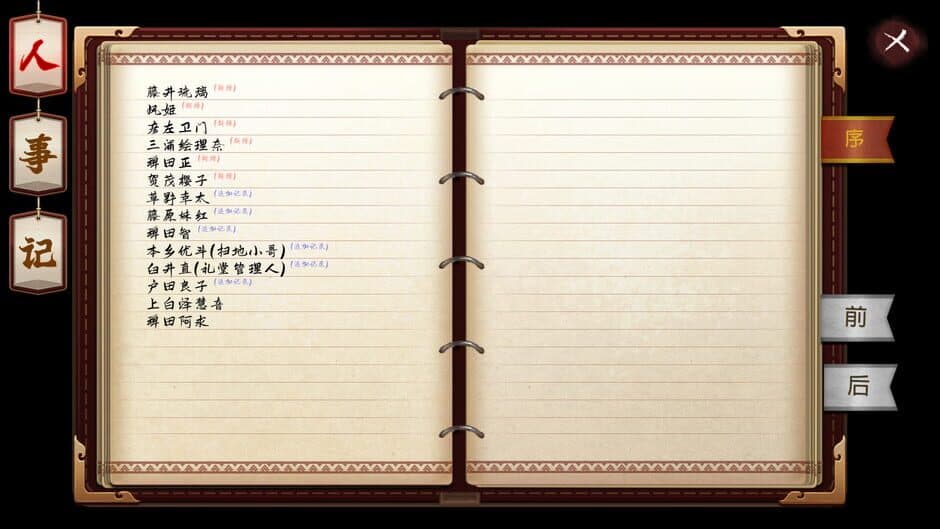 人
事
记
藤井琉璃(新增)
帆姬(新增)
彦左卫门(新增)
三浦绘理奈(新增)
稗田正(新增)
贺茂樱子(新增)
草野幸太(追加记录)
藤原妹红(追加记录)
稗田智(追加记录)
本乡优斗(扫地小哥)(追加记录)
白井直(礼堂管理人)(追加记录)
户田良子(追加记录)
上白泽慧音
稗田阿求
序
前
后